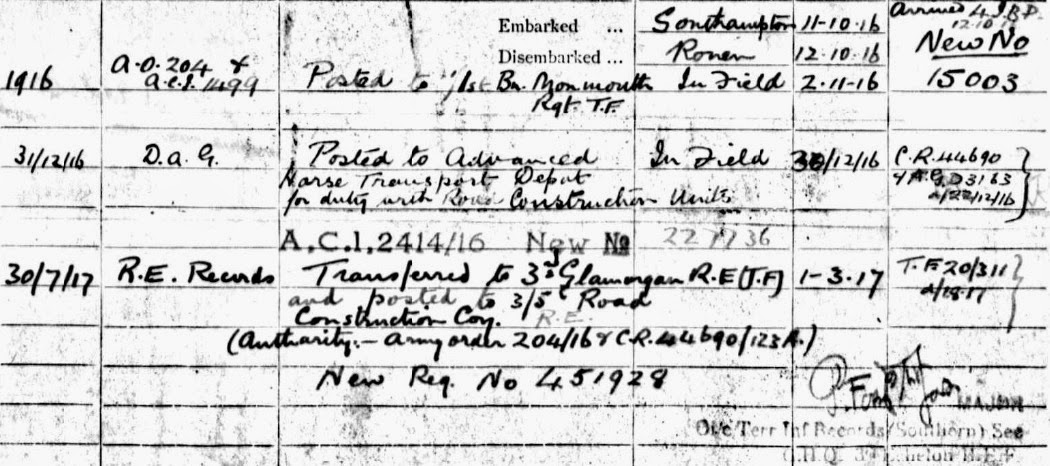 Embarked ... Southampton 11-10-16 Arrived 4 I.B.D. 12.10.16
Disembarked ... Rouen 12.10.16 New No
1916 A.O. 204 & A.C.I. 1499 Posted to 1/1st Bn. Monmouth In Field 2-11-16 15003
Rgt. T.F.
31/12/16 D.A.G. Posted to Advanced In Field 30/12/16 C.R. 44690
Horse Transport Depot 4 A.G. D3163
for duty with Road Construction Units d/22/12/16
A.C.I. 2414/16 New No 227736
30/7/17 R.E. Records Transferred to 3rd Glamorgan R.E (T.F) 1-3-17 T.F 20/311
and posted to 3/5 Road
Construction Coy. R.E.
(Authority:- Army order 204/16 & C.R. 44690/123A.)
New Reg. No 451928
MAJOR
Terr Inf Records (Southern) Sec
G.H.Q. 3rd Echelon B.E.F.